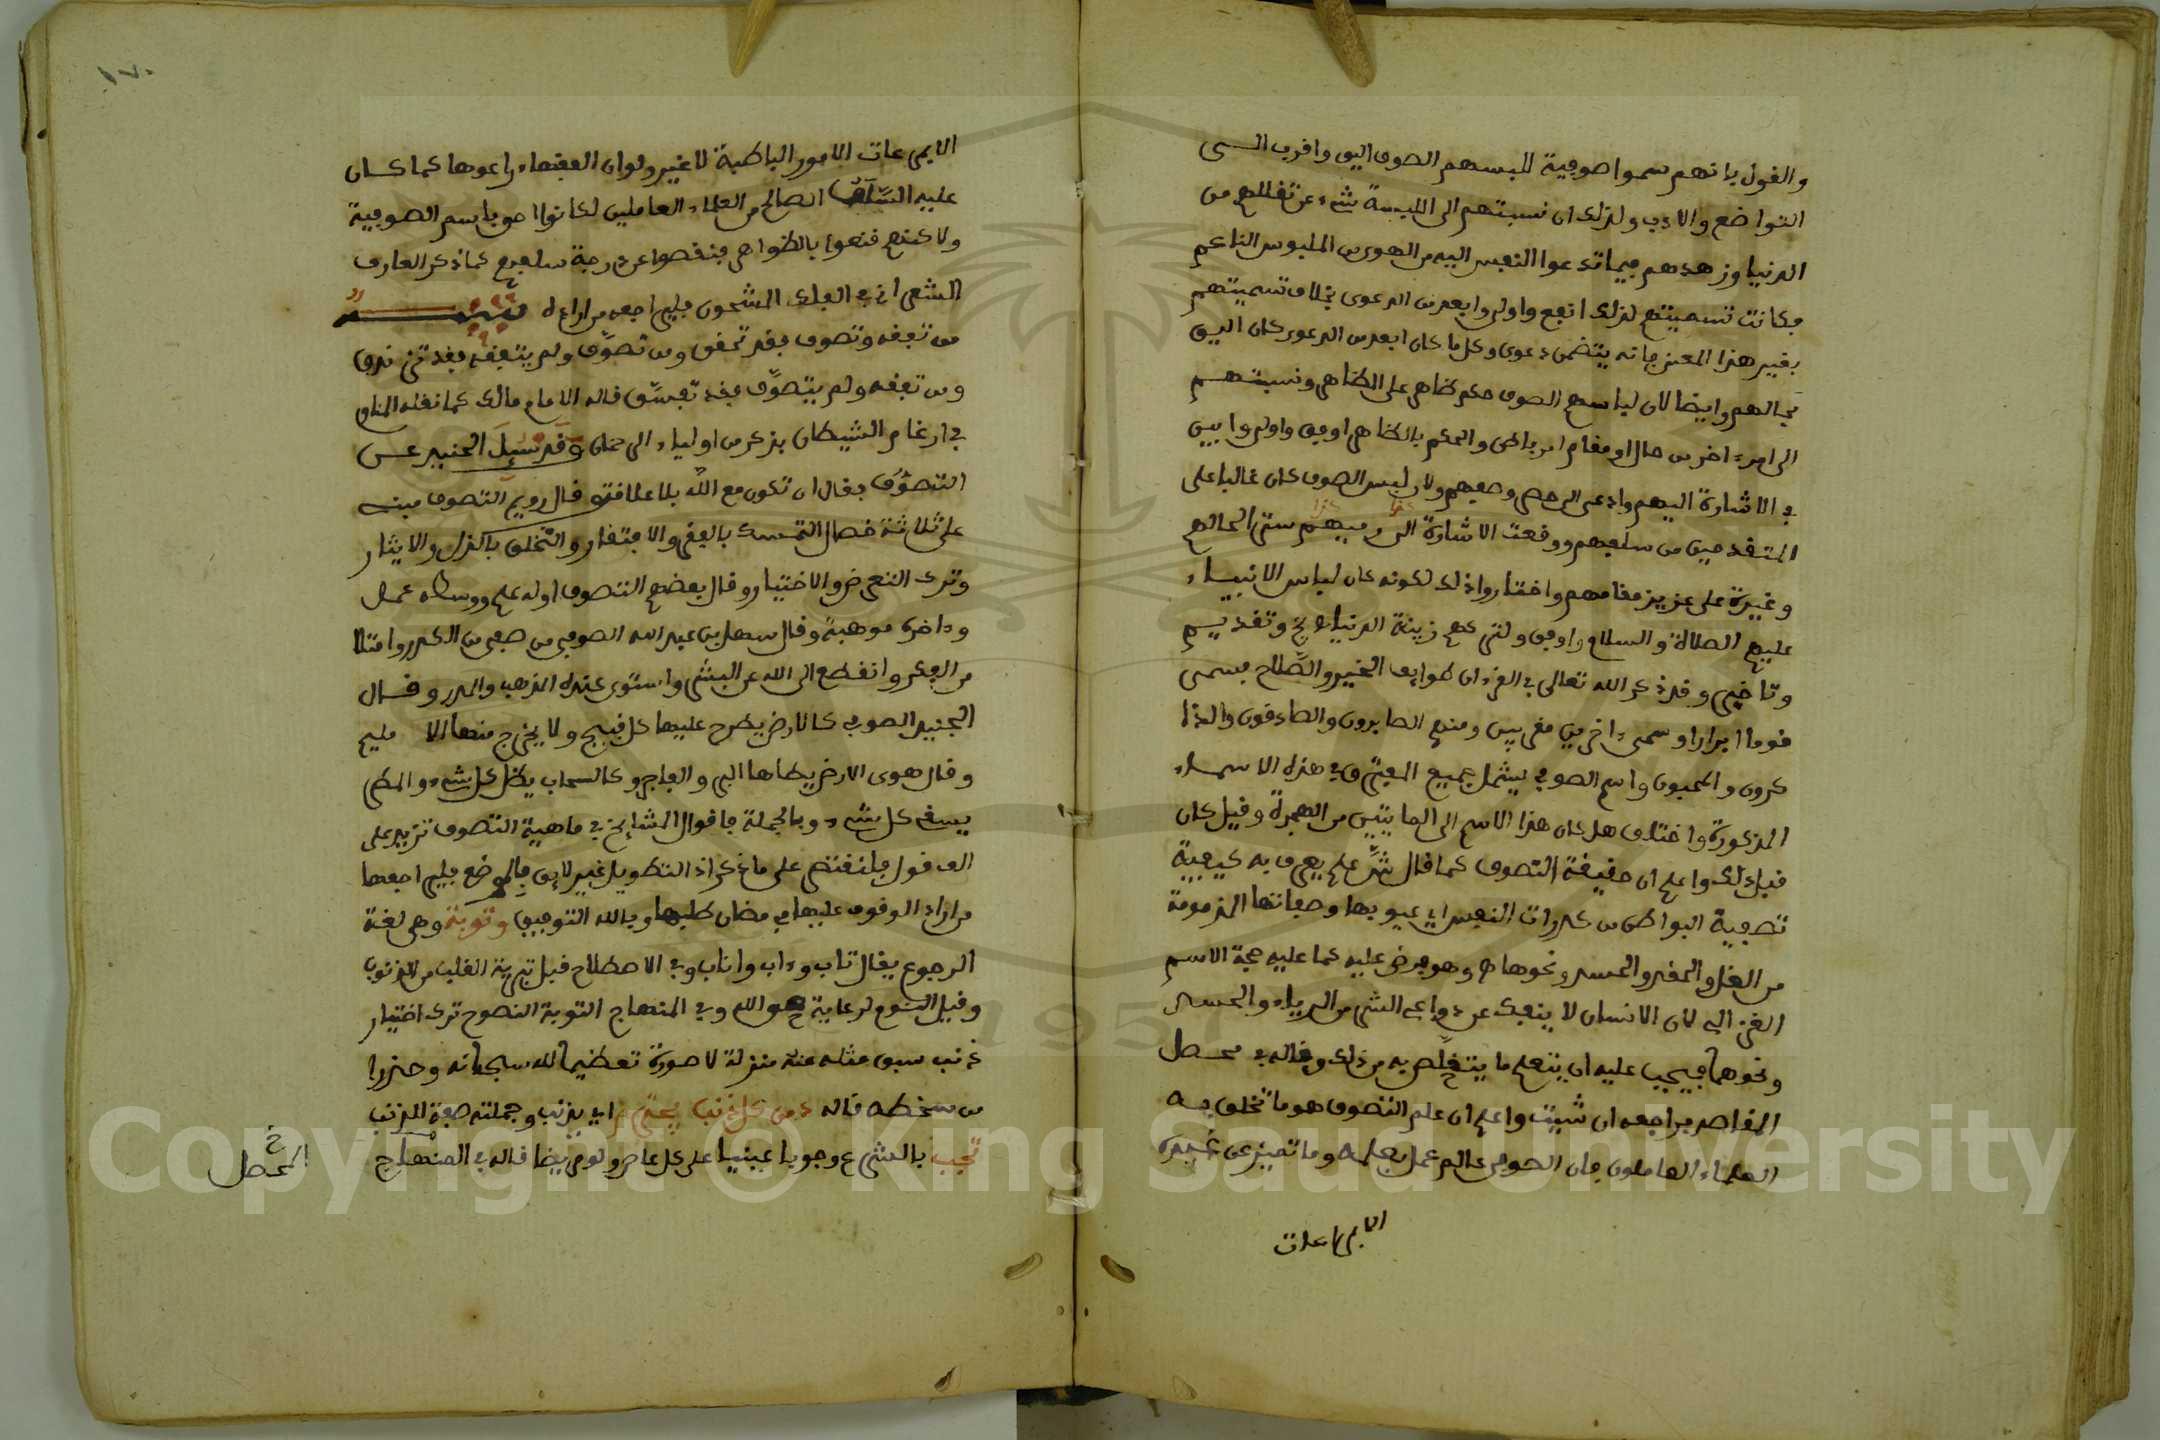 والقول بانهم سموا صوفية للبسهم الصوف اليق واقرب الى
التواضع والادب ولذلك ان نسبتهم الى اللبسة شيء عن تقللهم من
الدنيا وزهدهم فيما تدعوا النفس اليه من الهوى من الملبوس الناعم
فكانت تسميتهم لذلك انفع واولى وابعد من الدعوى بخلاف تسميتهم
بغير هذا المعنى فانه يتضمن دعوى وكل ما كان ابعد من الدعوى كان اليق
بحالهم وايضا لان لباسهم الصوف حكم ظاهر على الظاهر ونسبتهم
الى امر اخر من حال او مقام امر باطن والحكم بالظاهر اوفق واولى وابين
في الاشارة اليهم وادعى الى حصر وصفهم ولان لبس الصوف كان غالبا على
المتقدمين من سلفهم ووقعت الاشارة الى زيهم ستر الحالهم
وغيرة على عزيز مقامهم واختاروا ذلك لكونه كان لباس الانبياء
عليهم الصلاة والسلام اوفق ولتركهم زينة الدنيا وتقديم
وتاخير وقد ذكر الله تعالى في القرءان طوايف الخير والصلاح فسمى
قوما ابرارا وسمى ءاخرين مقربين ومنهم الصابرون والصادقون والذا
كرون والمحبون واسم الصوفي يشمل جميع المفترق في هذه الاسماء
المذكورة واختلف هل كان هذا الاسم الى المايتين من الهجرة وقيل كان
قبل ذلك واعلم ان حقيقة التصوف كما قال ش علم يعرف به كيفية
تصفية البواطن من كدرات النفس اي عيوبها وصفاتها المذمومة
من الغل والحقد والحسد ونحوها وهو فرض عليه كما عليه حجة الاسلام
الغزالي لان الانسان لا ينفك عن دواعي الشر من الرياء والحسد
ونحوهما فيجب عليه ان يتعلم ما يتخلص به من ذلك وقاله في محصل
المقاصد فراجعه ان شيت واعلم ان علم التصوف هو ما تخلق به
العلماء العاملون فان الصوفي عالم عمل بعلمه وما تميز عن غيره
الا بمراعات
الا بمراعات الامور الباطنة لا غير ولوان الفقهاء راعوها كما كان
عليه السلف الصالح من العلماء العاملين لكانوا احق باسم الصوفية
ولاكنهم قنعوا بالظواهر فنقصوا عن درجة سلفهم كما ذكر العارف
الشعراني في الفلك المشحون فليراجعه من اراده
من تفقه وتصوف فقد تحقق ومن تصوف ولم يتفقه فقد تزندق
ومن تفقه ولم يتصوف فقد تفسق قاله الامام مالك كما نقله المناوي
في ارغام الشيطان بذكر من اولياء الرحمان وقد سيل الجنيد عن
التصوف فقال ان تكون مع الله بلا علاقة قال رويم التصوف مبني
على ثلاثة خصال التمسك بالفقر والافتقار والتخلق بالبذل والايثار
وترك التعرض والاختيار وقال بعضهم التصوف اوله علم ووسطه عمل
وءاخره موهبة وقال سهل بن عبد الله الصوفي من صفى من الكدر وامتلا
من الفكر وانقطع الى الله عن البشر واستوى عنده الذهب والمدر وقال
الجنيد الصوفي كالارض يطرح عليها كل قبيح ولا يخرج منها الا مليح
وقال هوى الارض يطاها البر والفاجر وكالسحاب يظل كل شيء والمطر
يسقي كل شيء وبالجملة فاقوال المشايخ في ماهية التصوف تزيد على
الف قول فلنقتصر على ما ذكر اذ التطويل غير لايق بالموضع فليراجعها
من اراد الوقوف عليها في مضان طلبها وبالله التوفيق وتوبة وهي لغة
الرجوع يقال تاب وءاب واناب وفي الاصطلاح قيل تبرية القلب من الذنوب
وقيل النزوع لرعاية حقوق الله وفي المنهاج التوبة النصوح ترك اختيار
ذنب سبق مثله عنه منزلة لا صورة تعظيما لله سبحانه وحذرا
من سخطه قاله ومن كل ذنب يجترم اي يذنب وجملته صفة للذنب
تجب بالشرع وجوبا عينيا على كل عاص ولو مريضا قاله في المنهاج
المحصل
Copyright © King Saud University
1957